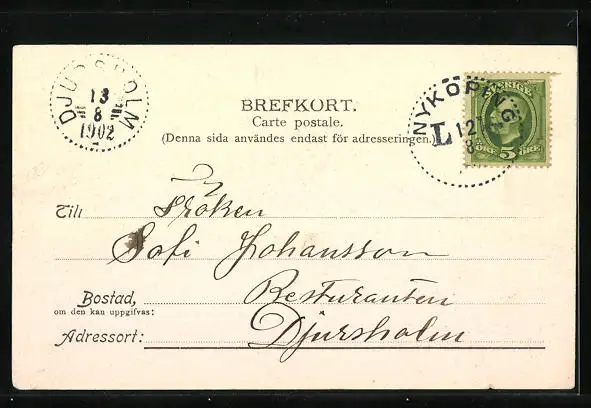 DJURSHOLM
13
8
1902
BREFKORT.
Carte postale.
(Denna sida användes endast för adresseringen.)
NYKÖPING
L 12
8
SVERIGE
ÖRE 5 ÖRE
Till Fröken
Sofi Johansson
Bostad, Resturanten
om den kan uppgifvas:
Adressort: Djursholm